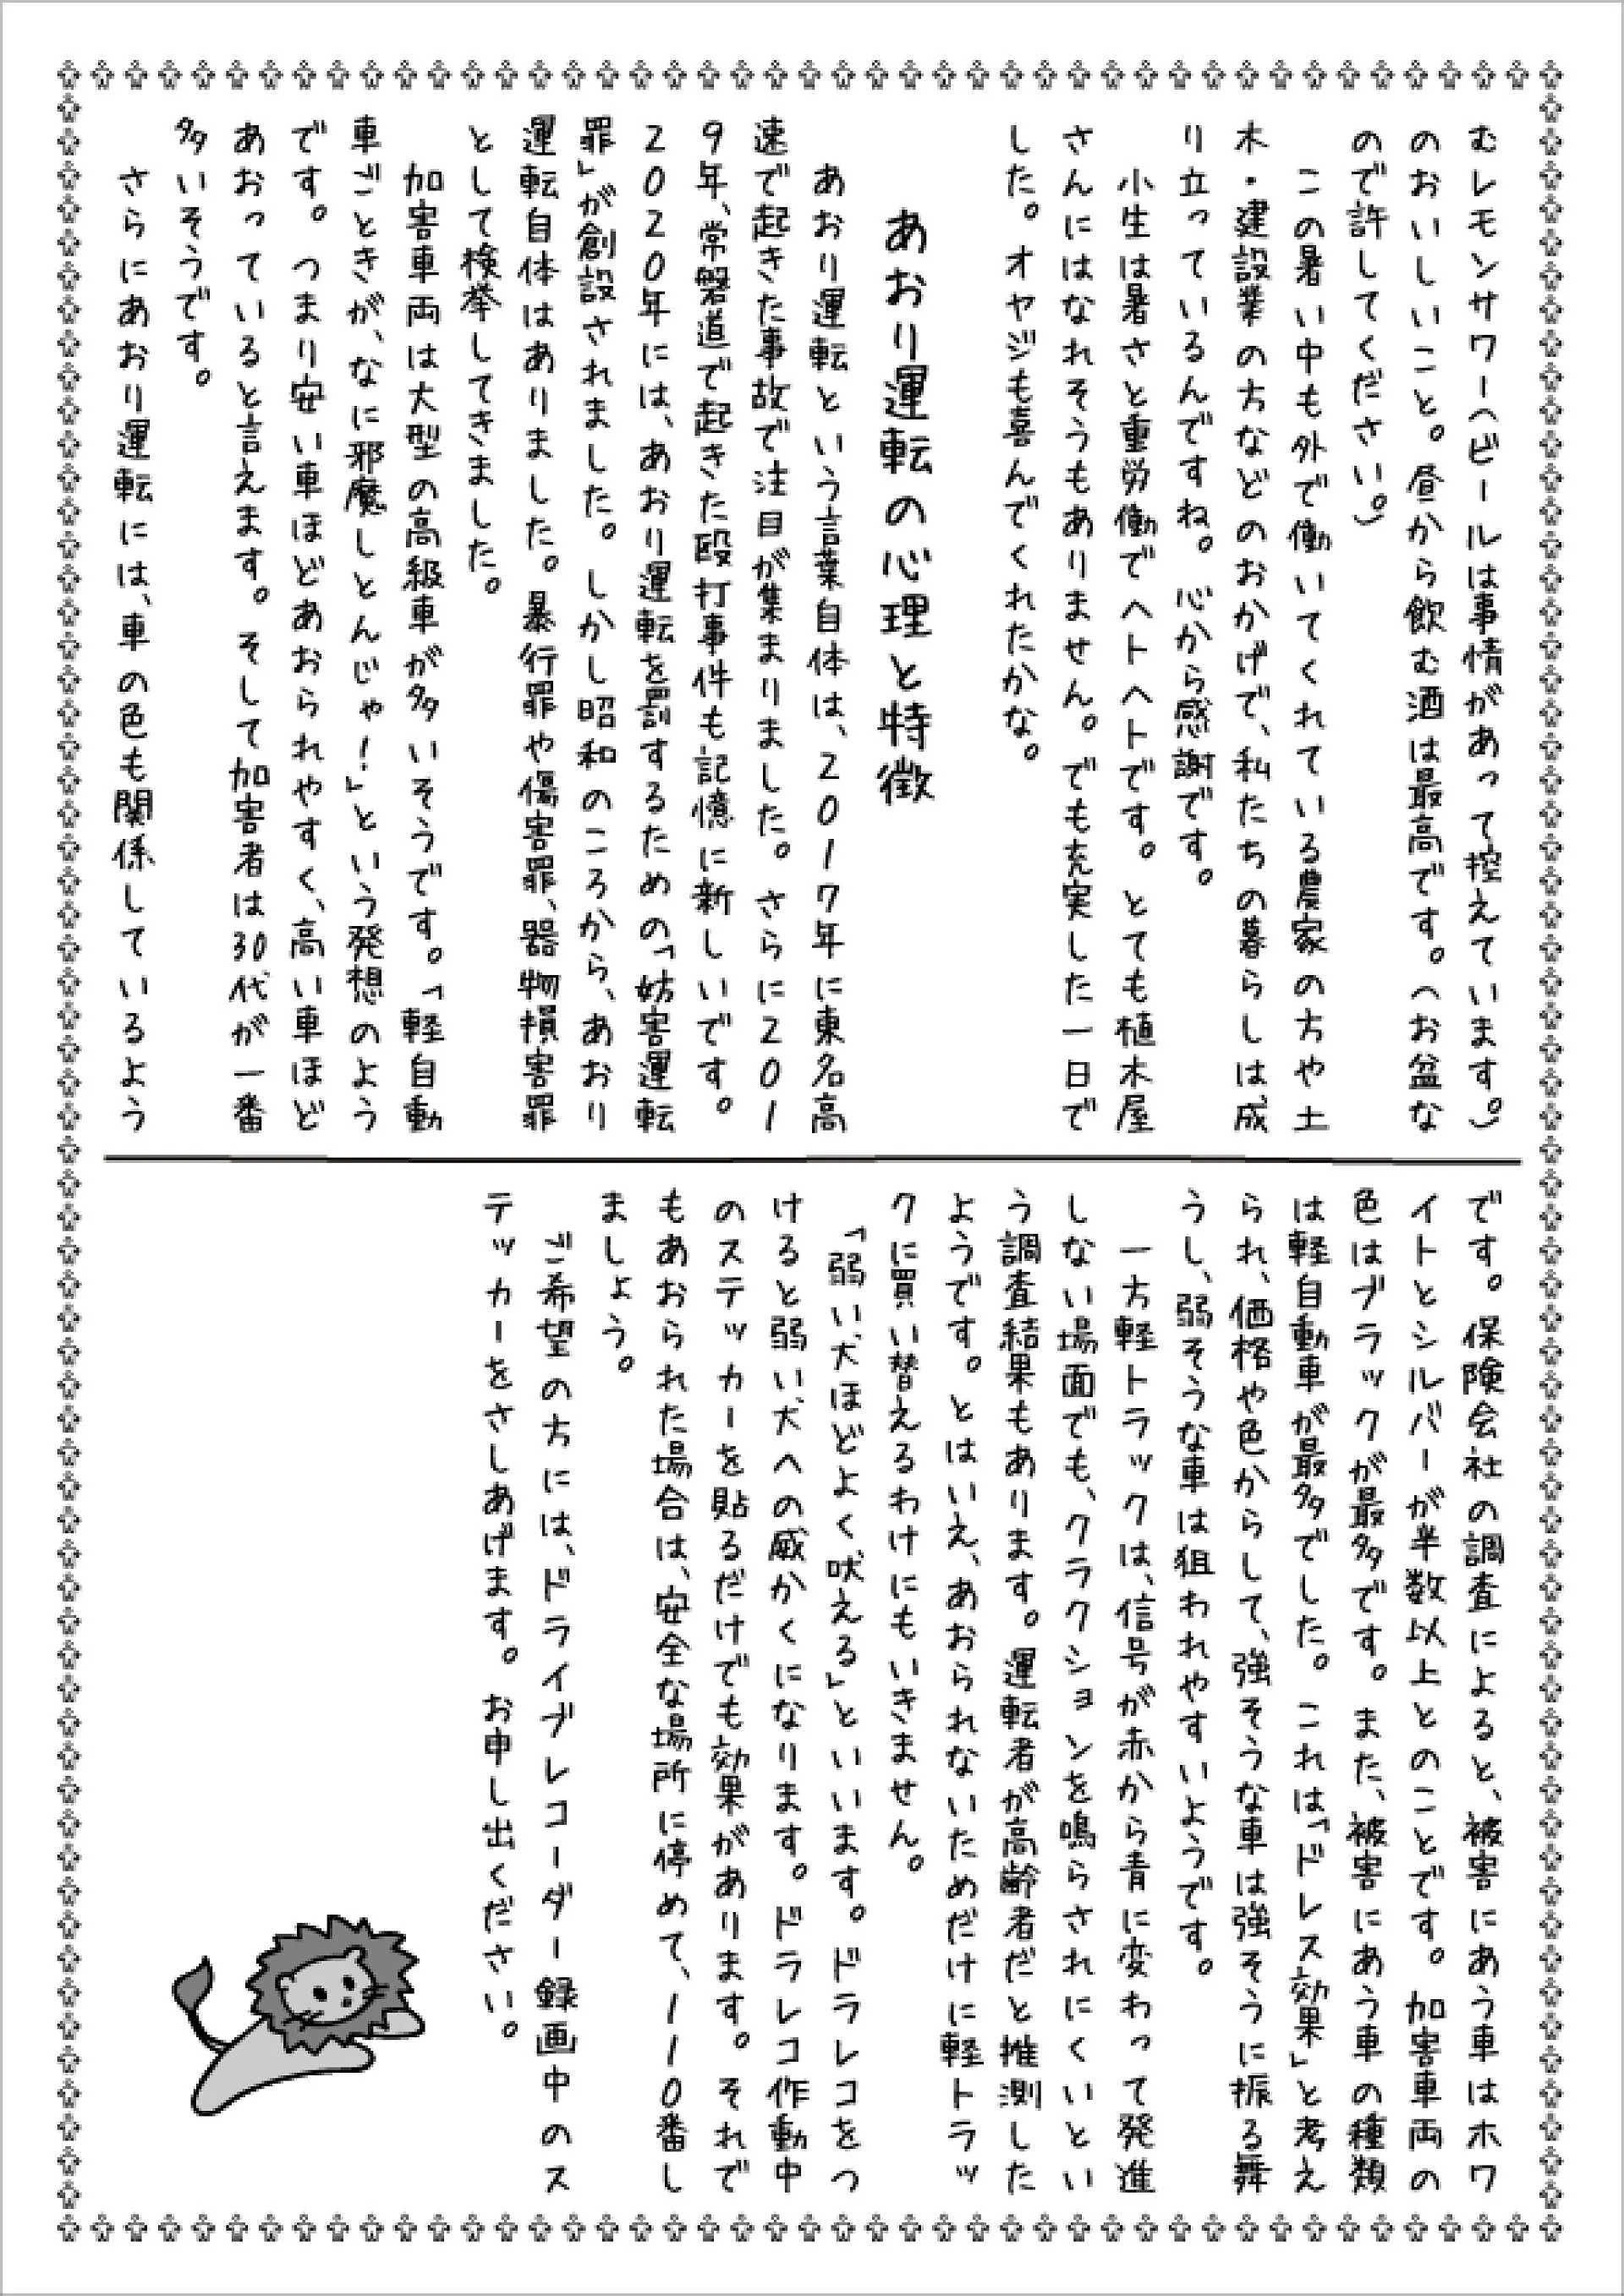 むレモンサワーへビールは事情があって控えています。)
のおいしいこと。昼から飲む酒は最高です。(お盆な
ので許してください。)
この暑い中も外で働いてくれている農家の方や土
木・建設業の方などのおかげで、私たちの暮らしは成
り立っているんですね。心から感謝です。
小生は暑さと重労働でヘトヘトです。とても植木屋
さんにはなれそうもありません。でも充実した一日で
した。オヤジも喜んでくれたかな。
あおり運転の心理と特徴
あおり運転という言葉自体は、2017年に東名高
速で起きた事故で注目が集まりました。さらに201
9年、常磐道で起きた殴打事件も記憶に新しいです。
2020年には、あおり運転を罰するための「妨害運転
罪」が創設されました。しかし昭和のころから、あおり
運転自体はありました。暴行罪や傷害罪、器物損害罪
として検挙してきました。
加害車両は大型の高級車が多いそうです。「軽自動
車ごときが、なに邪魔しとんじゃ!」という発想のよう
です。つまり安い車ほどあおられやすく、高い車ほど
あおっていると言えます。そして加害者は30代が一番
多いそうです。
さらにあおり運転には、車の色も関係しているよう
です。保険会社の調査によると、被害にあう車はホワ
イトとシルバーが半数以上とのことです。加害車両の
色はブラックが最多です。また、被害にあう車の種類
は軽自動車が最多でした。これは「ドレス効果」と考え
られ、価格や色からして、強そうな車は強そうに振る舞
うし、弱そうな車は狙われやすいようです。
一方軽トラックは、信号が赤から青に変わって発進
しない場面でも、クラクションを鳴らされにくいとい
う調査結果もあります。運転者が高齢者だと推測した
ようです。とはいえ、あおられないためだけに軽トラッ
クに買い替えるわけにもいきません。
「弱い犬ほどよく吠える」といいます。ドラレコをつ
けると弱い犬への威かくになります。ドラレコ作動中
のステッカーを貼るだけでも効果があります。それで
もあおられた場合は、安全な場所に停めて、110番し
ましょう。
ご希望の方には、ドライブレコーダー録画中のス
テッカーをさしあげます。お申し出ください。